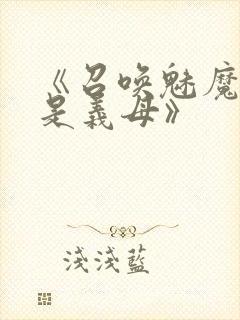 《召喚魅魔
是義母》
淺淺藍